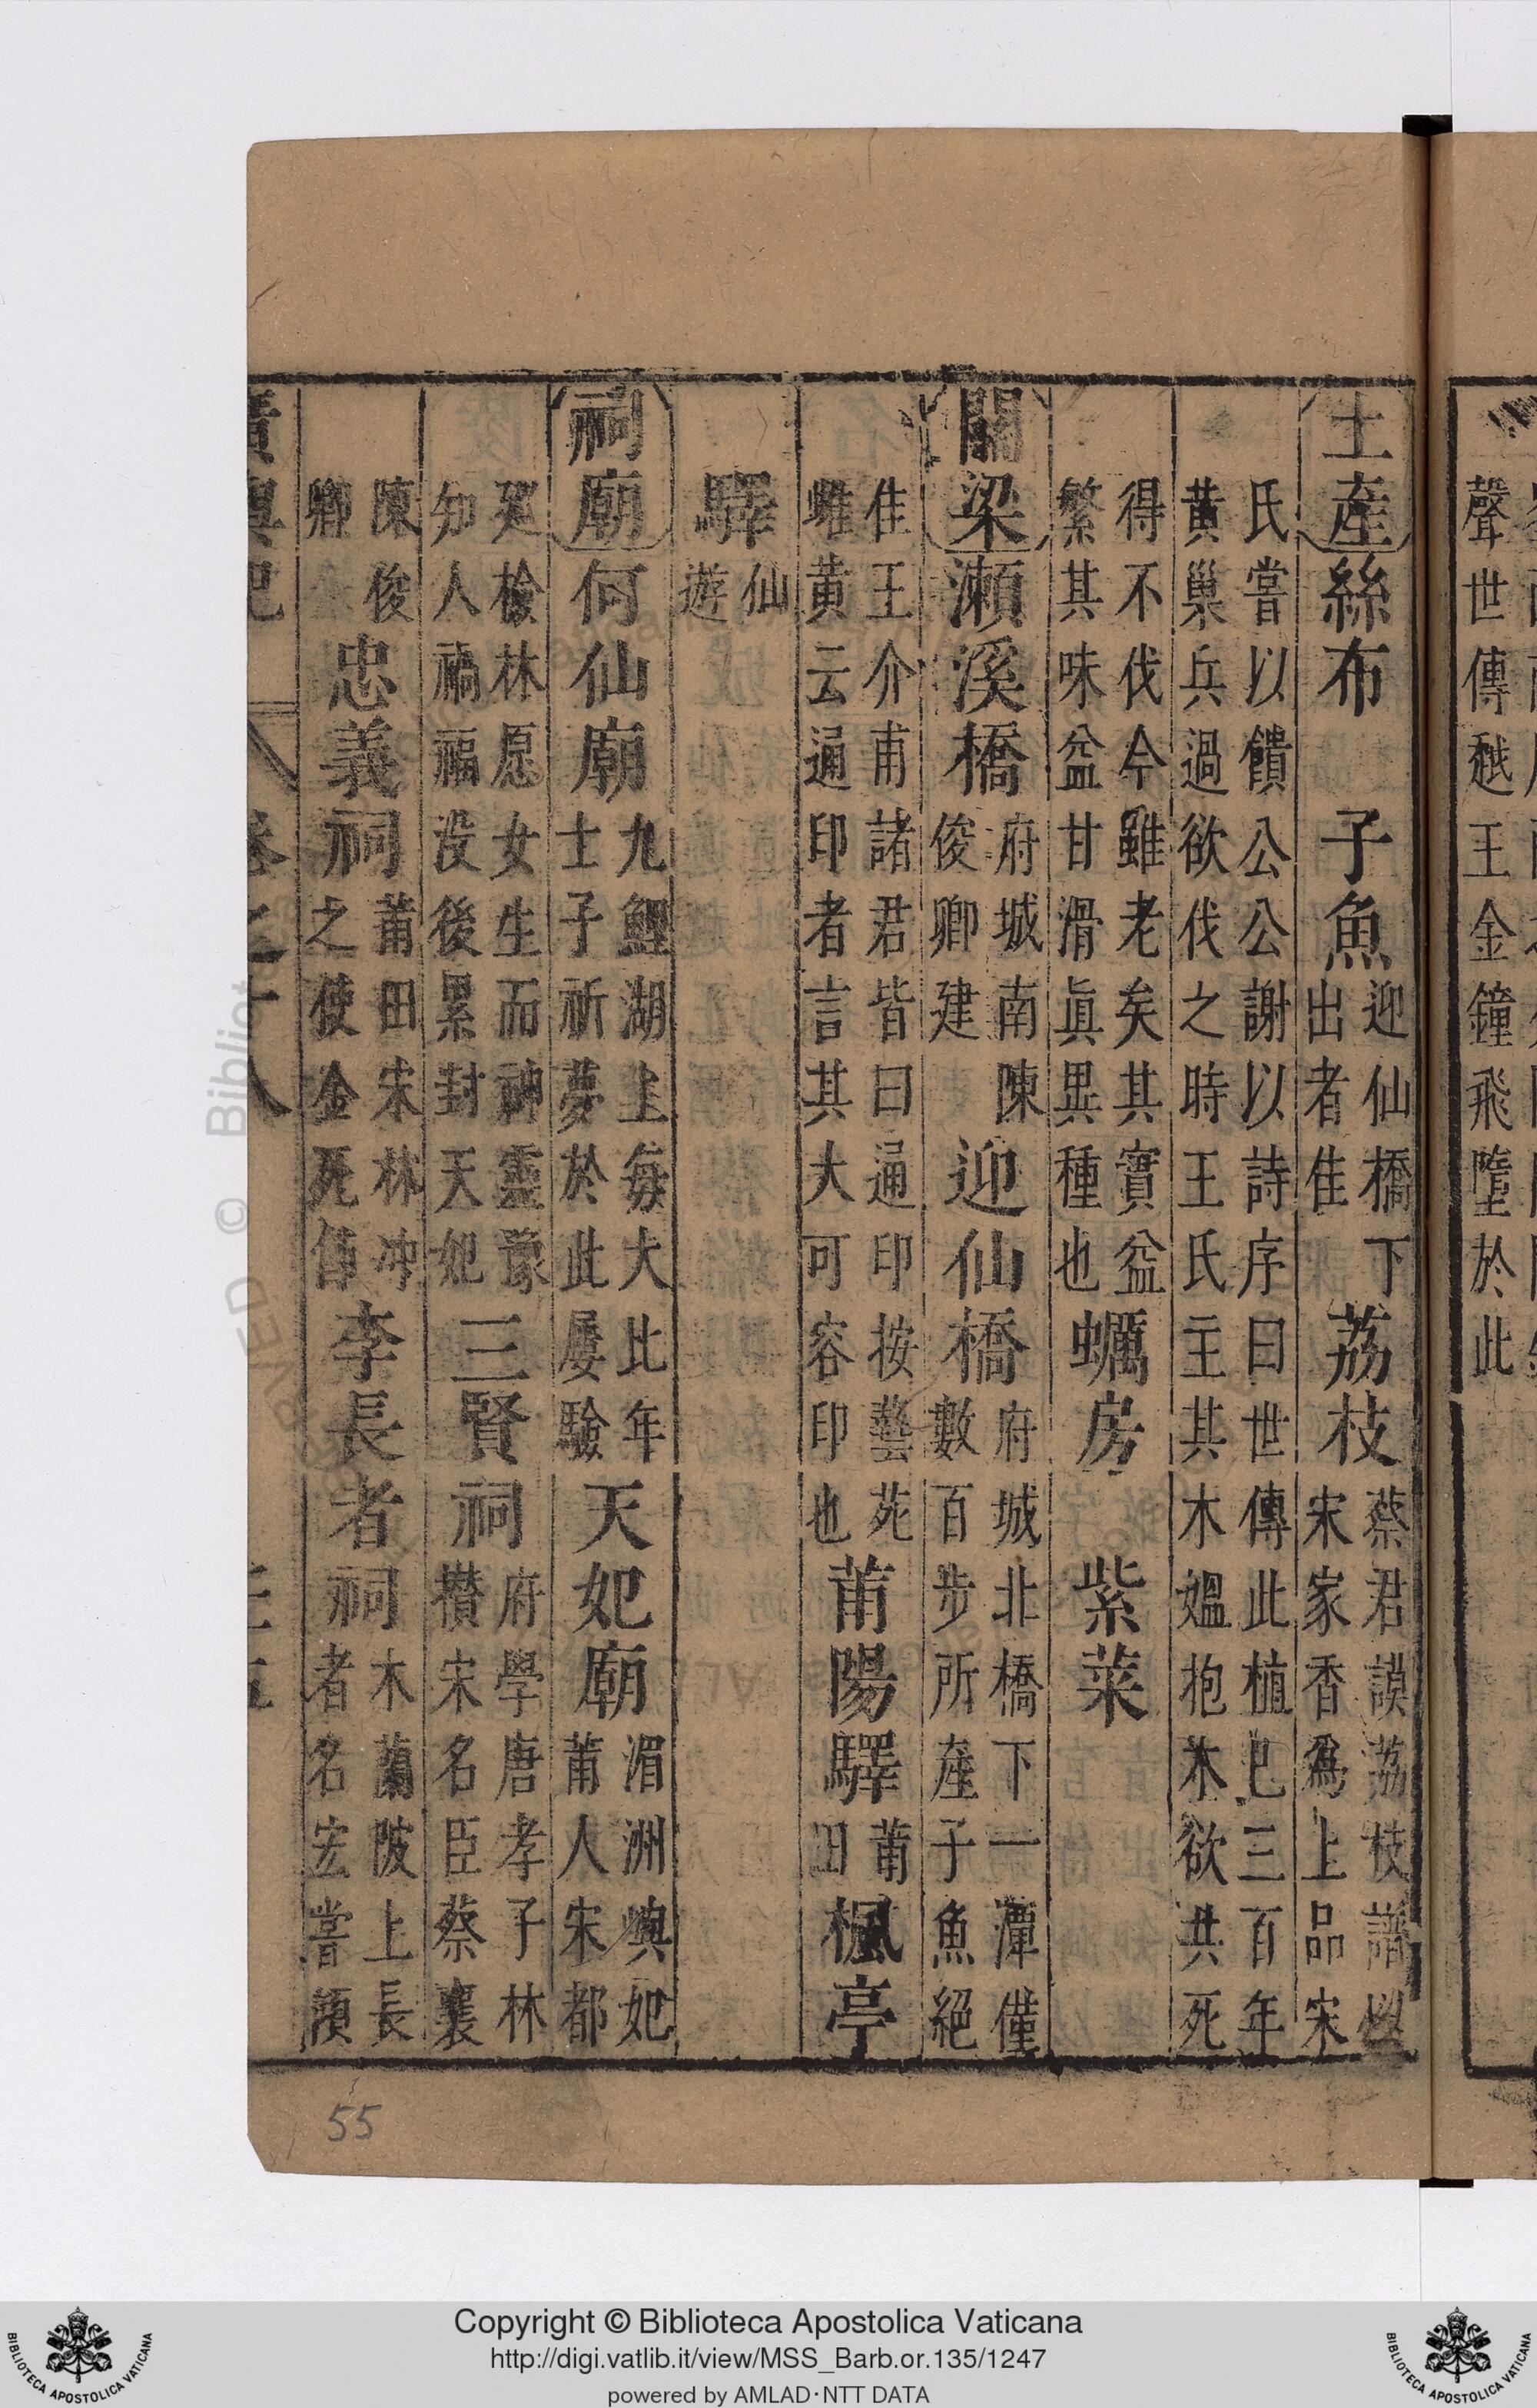 聲世傳越王金鐘飛墮於此
土產 絲布 子魚 迎仙橋下出者佳 荔枝 蔡君謨荔枝譜以宋家香爲上品宋
氏嘗以饋公公謝以詩序曰世傳此植已三百年黃巢兵過欲伐之時王氏主其木媼抱木欲共死
得不伐今雖老矣其實益繁其味益甘滑眞異種也 蠣房 紫菜
關梁 瀨溪橋 府城南陳俊卿建 迎仙橋 府城北橋下一潭僅數百步所產子魚絕
佳王介甫諸君皆曰通印按藝苑雌黃云通印者言其大可容印也 莆陽驛 莆田 楓亭
驛 仙遊
祠廟 何仙廟 九鯉湖上每大比年士子祈夢於此屢驗 天妃廟 湄洲嶼妃莆人宋都
廵檢林愿女生而神靈豫知人禍福没後累封天妃 三賢祠 府學唐孝子林攢宋名臣蔡襄
陳俊卿 忠義祠 莆田宋林冲之使金死 李長者祠 木蘭陂上長者名宏嘗傾
廣輿記 卷之十八
55
Copyright © Biblioteca Apostolica Vaticana
http://digi.vatlib.it/view/MSS_Barb.or.135/1247
powered by AMLAD·NTT DATA
BIBLIOTECA APOSTOLICA VATICANA
BIBLIOTECA APOSTOLICA VATICANA